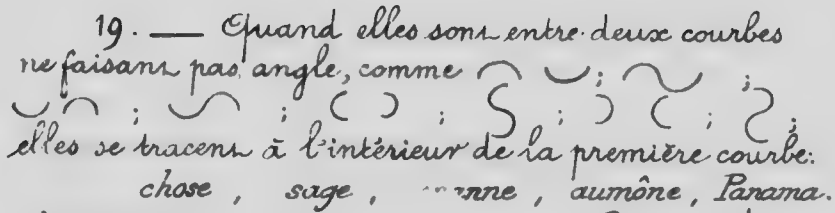 19. — Quand elles sont entre deux courbes
ne faisant pas angle, comme ; ;
; ; ; ; ; ;
elles se tracent à l'intérieur de la première courbe:
chose, sage, aumône, Panama.